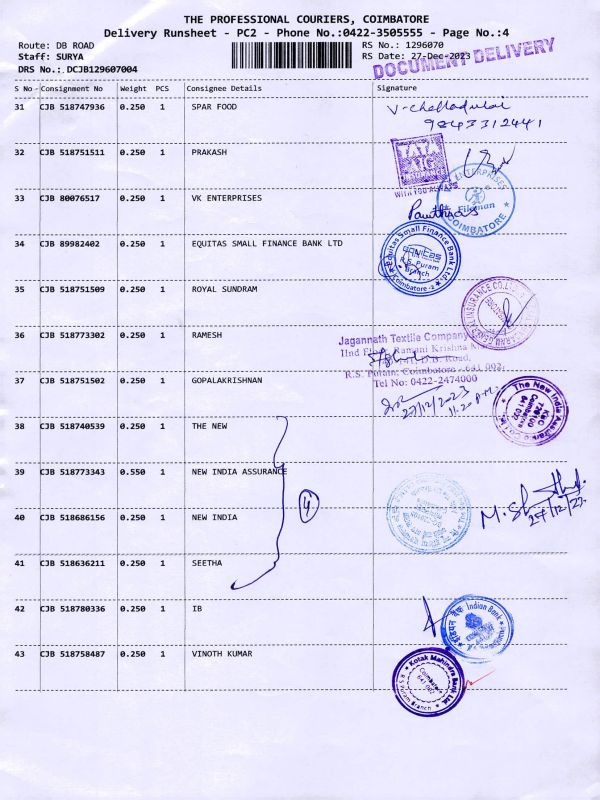 THE PROFESSIONAL COURIERS, COIMBATORE
Delivery Runsheet - PC2 - Phone No.:0422-3505555 - Page No.:4
Route: DB ROAD
RS No.: 1296070
Staff: SURYA
RS Date: 27-Dec-2023
DRS No.: DCJB129607004
DOCUMENT DELIVERY
S No Consignment No Weight PCS Consignee Details Signature
31 CJB 518747936 0.250 1 SPAR FOOD
9843312441
32 CJB 518751511 0.250 1 PRAKASH
TATA
AIG
WITH YOU ALWAYS
33 CJB 80076517 0.250 1 VK ENTERPRISES
ENTERPRISES
COIMBATORE
34 CJB 89982402 0.250 1 EQUITAS SMALL FINANCE BANK LTD
Equitas Small Finance Bank Ltd
R.S. Puram
Branch
Coimbatore-2
35 CJB 518751509 0.250 1 ROYAL SUNDRAM
36 CJB 518773302 0.250 1 RAMESH
Jagannath Textile Company
D.B. Road,
R.S. Puram, Coimbatore - 641 002.
Tel No: 0422-2474000
37 CJB 518751502 0.250 1 GOPALAKRISHNAN
27/12/2023
The New India Assurance
38 CJB 518740539 0.250 1 THE NEW
39 CJB 518773343 0.550 1 NEW INDIA ASSURANCE
4
40 CJB 518686156 0.250 1 NEW INDIA
41 CJB 518636211 0.250 1 SEETHA
42 CJB 518780336 0.250 1 IB
Indian Bank
43 CJB 518758487 0.250 1 VINOTH KUMAR
Kotak Mahindra Bank Ltd.
Coimbatore
641 002
R S Puram Branch